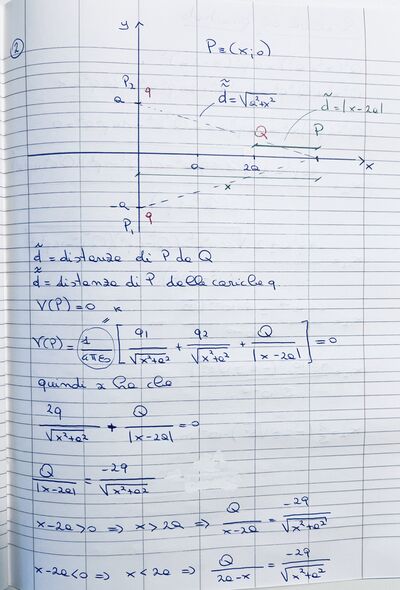 2
y
P ≡ (x;0)
P₂ q
a
d̃̃ = √(a²+x²)
d̃ = |x-2a|
Q P
a 2a x
x
-a
P₁ q
d̃ = distanza di P da Q
d̃̃ = distanza di P dalle cariche q.
V(P) = 0 K
V(P) = 1/(4πε₀) [ q1/√(x²+a²) + q2/√(x²+a²) + Q/|x-2a| ] = 0
quindi si ha che
2q/√(x²+a²) + Q/|x-2a| = 0
Q/|x-2a| = -2q/√(x²+a²)
x-2a>0 ⇒ x>2a ⇒ Q/(x-2a) = -2q/√(x²+a²)
x-2a<0 ⇒ x<2a ⇒ Q/(2a-x) = -2q/√(x²+a²)